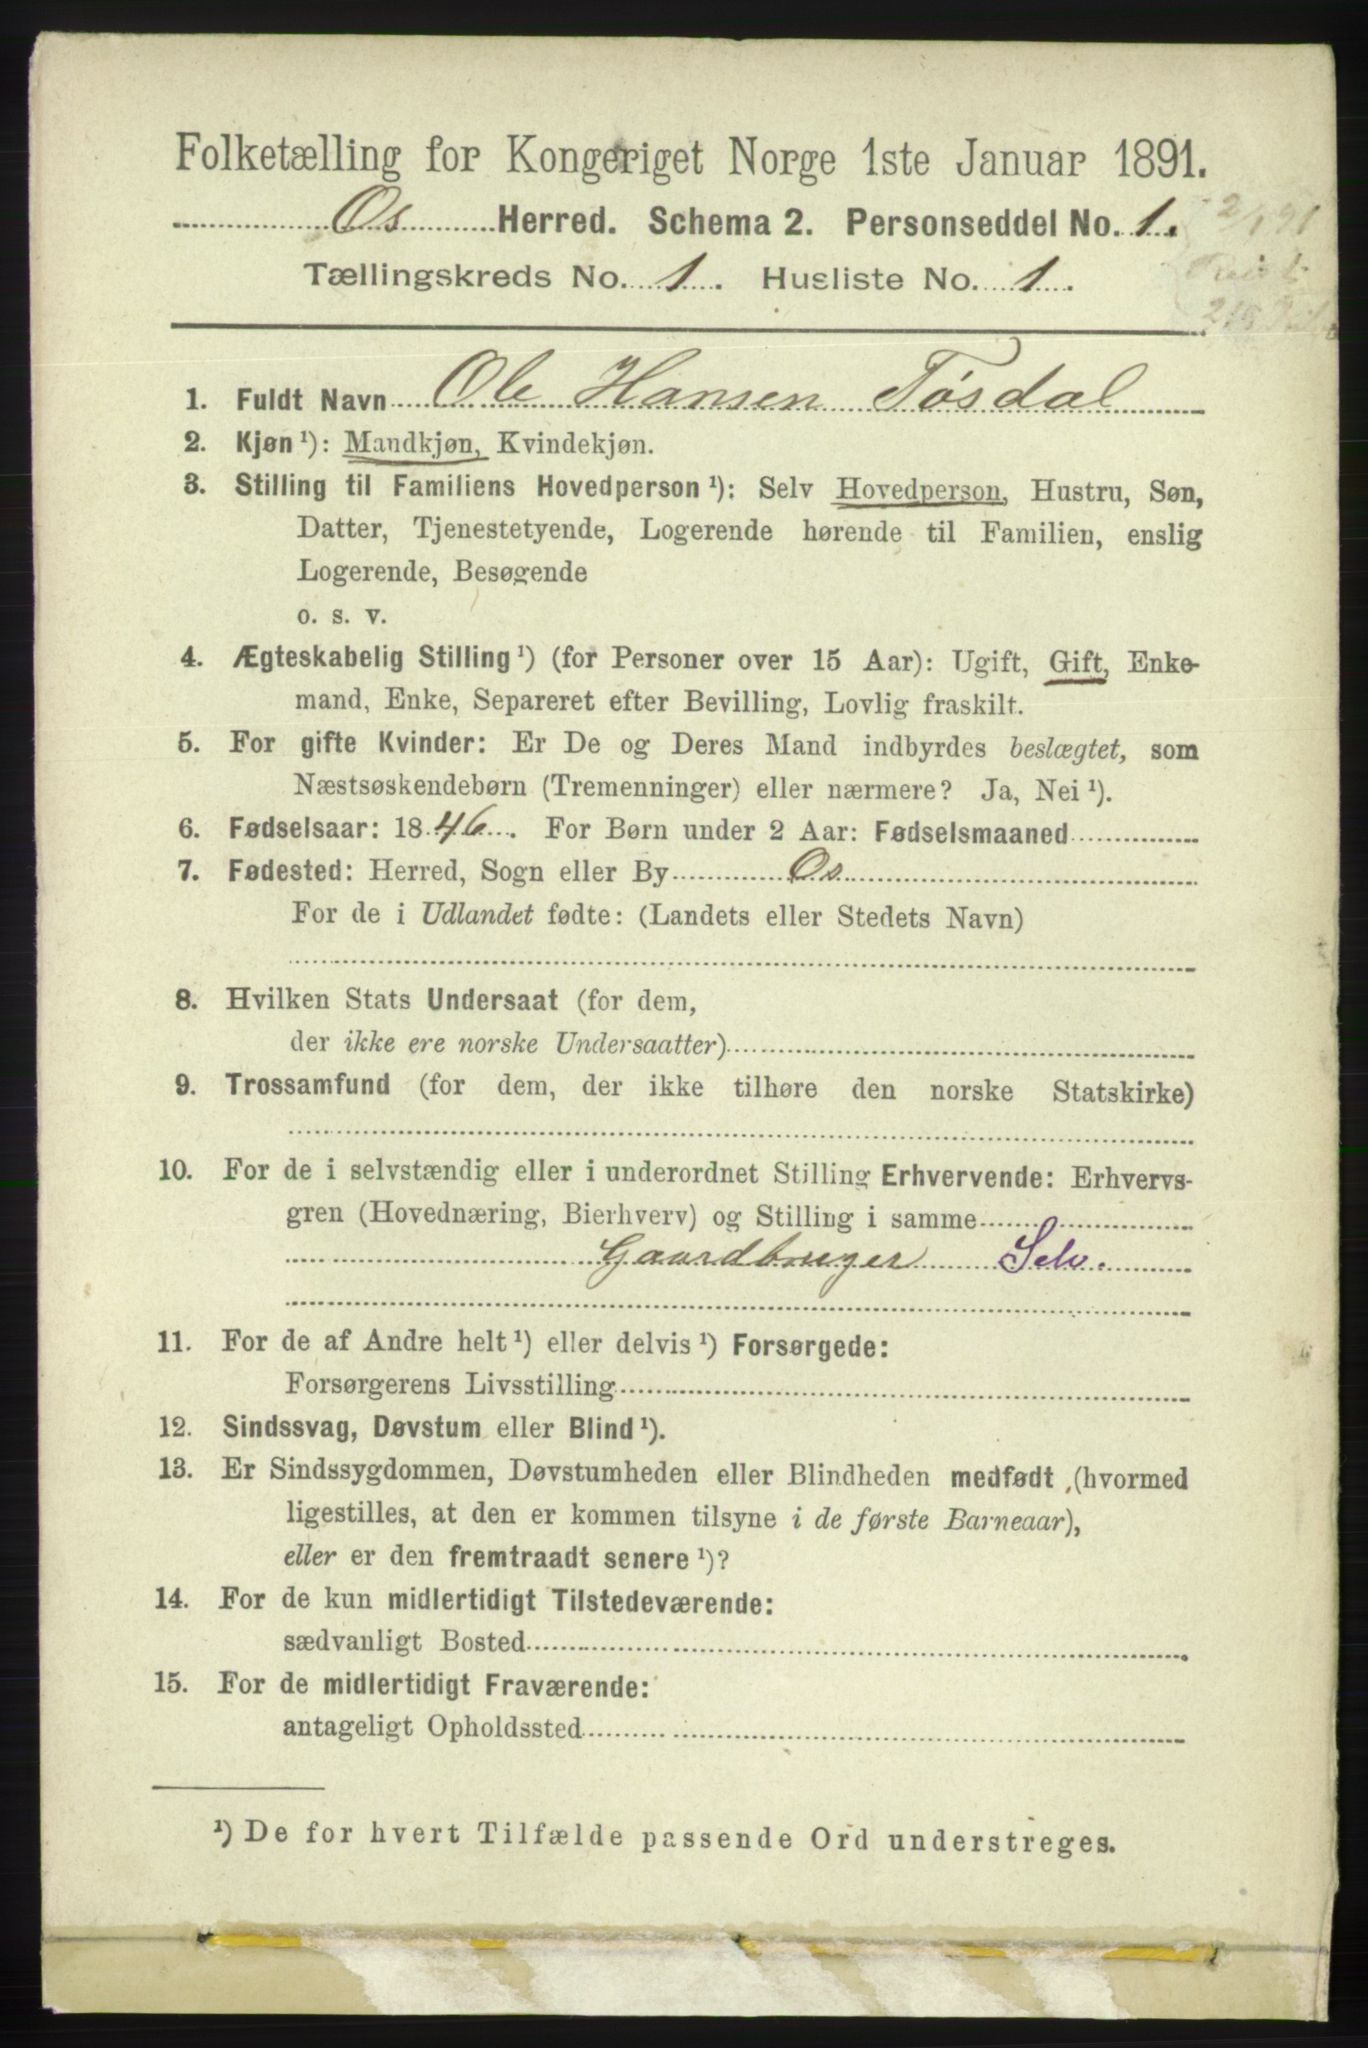 Folketælling for Kongeriget Norge 1ste Januar 1891.
Os Herred. Schema 2. Personseddel No. 1.
Tællingskreds No. 1. Husliste No. 1.
2/1 91
1. Fuldt Navn Ole Hansen Tøsdal
2. Kjøn¹): Mandkjøn, Kvindekjøn.
3. Stilling til Familiens Hovedperson¹): Selv Hovedperson, Hustru, Søn,
Datter, Tjenestetyende, Logerende hørende til Familien, enslig
Logerende, Besøgende
o. s. v.
4. Ægteskabelig Stilling¹) (for Personer over 15 Aar): Ugift, Gift, Enke-
mand, Enke, Separeret efter Bevilling, Lovlig fraskilt.
5. For gifte Kvinder: Er De og Deres Mand indbyrdes beslægtet, som
Næstsøskendebørn (Tremenninger) eller nærmere? Ja, Nei¹).
6. Fødselsaar: 1846. For Børn under 2 Aar: Fødselsmaaned
7. Fødested: Herred, Sogn eller By Os
For de i Udlandet fødte: (Landets eller Stedets Navn)
8. Hvilken Stats Undersaat (for dem,
der ikke ere norske Undersaatter)
9. Trossamfund (for dem, der ikke tilhøre den norske Statskirke)
10. For de i selvstændig eller i underordnet Stilling Erhvervende: Erhvervs-
gren (Hovednæring, Bierhverv) og Stilling i samme
Gaardbruger Selv.
11. For de af Andre helt¹) eller delvis¹) Forsørgede:
Forsørgerens Livsstilling
12. Sindssvag, Døvstum eller Blind¹).
13. Er Sindssygdommen, Døvstumheden eller Blindheden medfødt (hvormed
ligestilles, at den er kommen tilsyne i de første Barneaar),
eller er den fremtraadt senere¹)?
14. For de kun midlertidigt Tilstedeværende:
sædvanligt Bosted
15. For de midlertidigt Fraværende:
antageligt Opholdssted
¹) De for hvert Tilfælde passende Ord understreges.